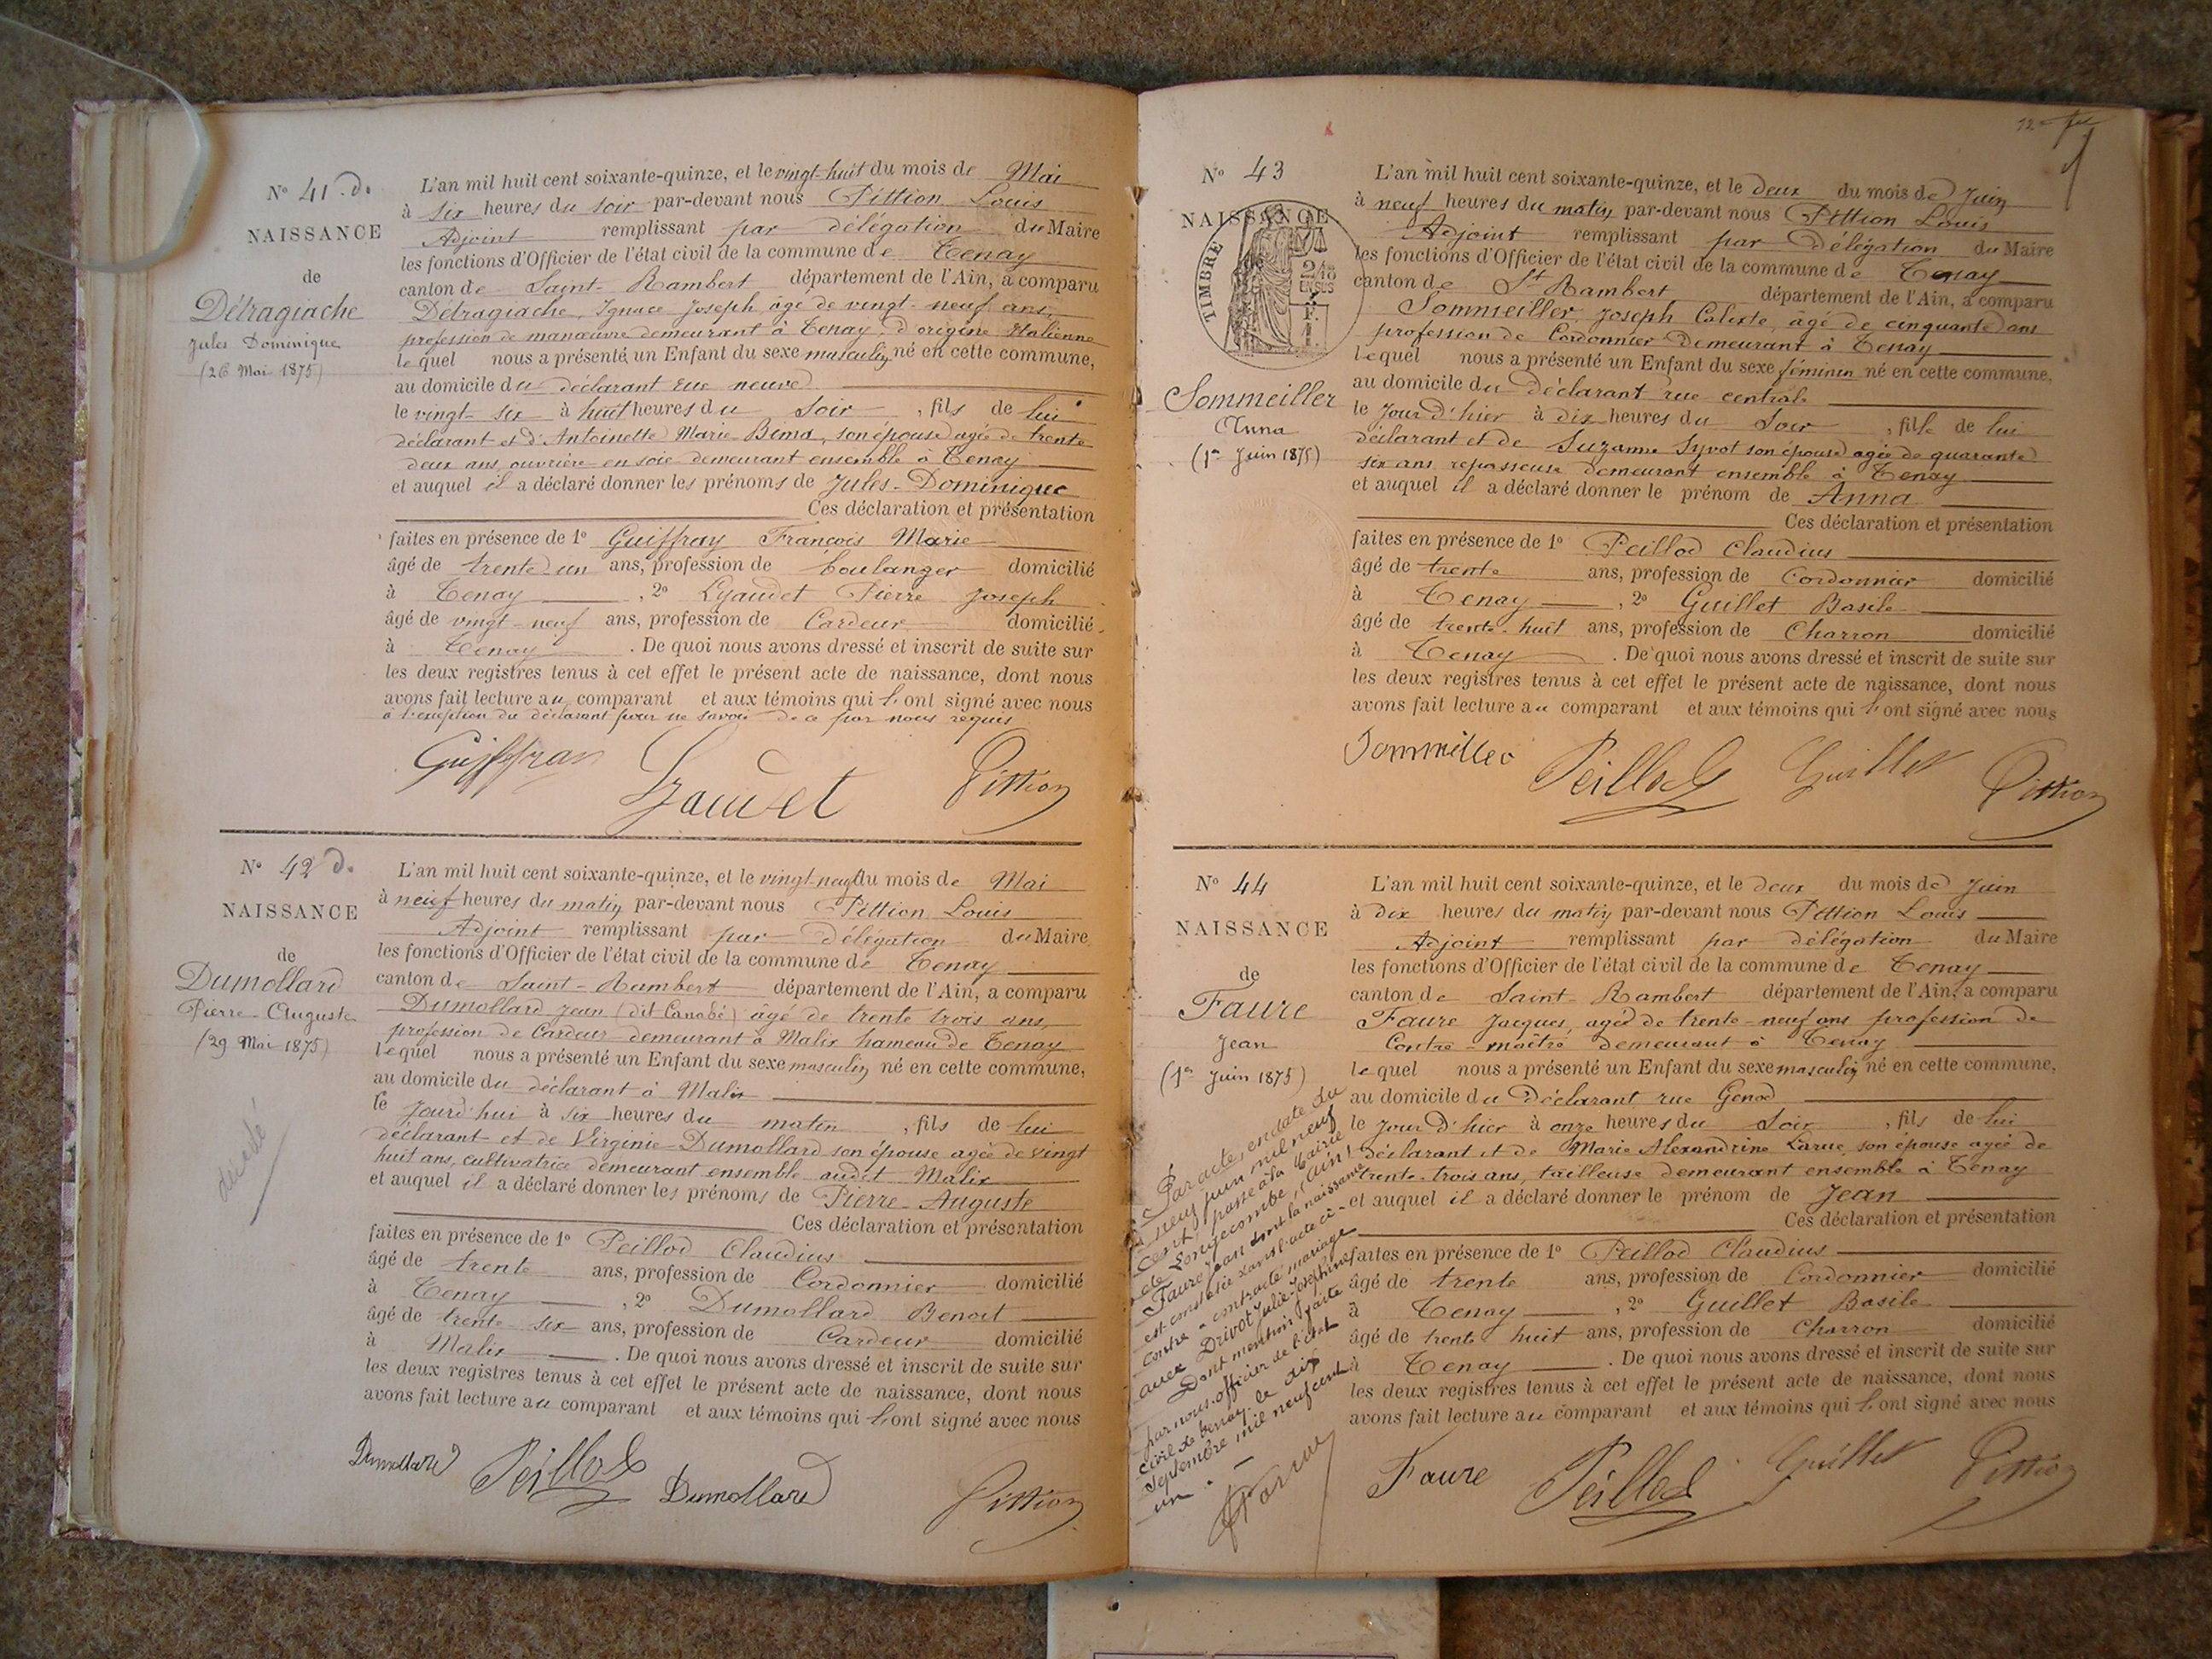 N° 41. d.
NAISSANCE
de
Détragiache
Jules Dominique
(26 Mai 1875)
L'an mil huit cent soixante-quinze, et le vingt-huit du mois de Mai
à six heures du soir par-devant nous Pittion Louis
Adjoint remplissant par délégation du Maire
les fonctions d'Officier de l'état civil de la commune de Tenay
canton de Saint-Rambert département de l'Ain, a comparu
Détragiache, Ignace Joseph âgé de vingt-neuf ans,
profession de manœuvre demeurant à Tenay, d'origine Italienne
lequel nous a présenté un Enfant du sexe masculin né en cette commune,
au domicile du déclarant rue neuve
le vingt-six à huit heures du soir, fils de lui
déclarant et d'Antoinette Marie Bima, son épouse agée de trente
deux ans, ouvrière en soie demeurant ensemble à Tenay
et auquel il a déclaré donner les prénoms de Jules-Dominique
Ces déclaration et présentation
faites en présence de 1° Guiffray François Marie
âgé de trente-un ans, profession de boulanger domicilié
à Tenay, 2° Lyaudet Pierre Joseph
âgé de vingt-neuf ans, profession de Cardeur domicilié
à Tenay. De quoi nous avons dressé et inscrit de suite sur
les deux registres tenus à cet effet le présent acte de naissance, dont nous
avons fait lecture au comparant et aux témoins qui l'ont signé avec nous
à l'exception du déclarant pour ne savoir de ce par nous requis
Guiffray Lyaudet Pittion
N° 42 d.
NAISSANCE
de
Dumollard
Pierre-Auguste
(29 Mai 1875)
décédé
L'an mil huit cent soixante-quinze, et le vingt-neuf du mois de Mai
à neuf heures du matin par-devant nous Pittion Louis
Adjoint remplissant par délégation du Maire
les fonctions d'Officier de l'état civil de la commune de Tenay
canton de Saint-Rambert département de l'Ain, a comparu
Dumollard Jean (dit Canobé) âgé de trente trois ans,
profession de Cardeur demeurant à Malix hameau de Tenay
lequel nous a présenté un Enfant du sexe masculin né en cette commune,
au domicile du déclarant à Malix
le jourd'hui à six heures du matin, fils de lui
déclarant et de Virginie Dumollard son épouse agée de vingt
huit ans, cultivatrice demeurant ensemble audit Malix
et auquel il a déclaré donner les prénoms de Pierre-Auguste
Ces déclaration et présentation
faites en présence de 1° Peillod Claudius
âgé de trente ans, profession de Cordonnier domicilié
à Tenay, 2° Dumollard Benoit
âgé de trente-six ans, profession de Cardeur domicilié
à Malix. De quoi nous avons dressé et inscrit de suite sur
les deux registres tenus à cet effet le présent acte de naissance, dont nous
avons fait lecture au comparant et aux témoins qui l'ont signé avec nous
Dumollard Peillod Dumollard Pittion
12
N° 43
NAISSANCE
TIMBRE
Sommeiller
Anna
(1er Juin 1875)
L'an mil huit cent soixante-quinze, et le deux du mois de Juin
à neuf heures du matin par-devant nous Pittion Louis
Adjoint remplissant par délégation du Maire
les fonctions d'Officier de l'état civil de la commune de Tenay
canton de St Rambert département de l'Ain, a comparu
Sommeiller Joseph Calixte, âgé de cinquante ans
profession de Cordonnier Demeurant à Tenay
lequel nous a présenté un Enfant du sexe féminin né en cette commune,
au domicile du Déclarant rue centrale
le jour d'hier à dix heures du soir, fille de lui
déclarant et de Suzanne Syvot son épouse agée de quarante
six ans repasseuse demeurant ensemble à Tenay
et auquel il a déclaré donner le prénom de Anna
Ces déclaration et présentation
faites en présence de 1° Peillod Claudius
âgé de trente ans, profession de Cordonnier domicilié
à Tenay, 2° Guillet Basile
âgé de trente-huit ans, profession de Charron domicilié
à Tenay. De quoi nous avons dressé et inscrit de suite sur
les deux registres tenus à cet effet le présent acte de naissance, dont nous
avons fait lecture au comparant et aux témoins qui l'ont signé avec nous
Sommeiller Peillod Guillet Pittion
N° 44
NAISSANCE
de
Faure
Jean
(1er Juin 1875)
L'an mil huit cent soixante-quinze, et le deux du mois de Juin
à dix heures du matin par-devant nous Pittion Louis
Adjoint remplissant par délégation du Maire
les fonctions d'Officier de l'état civil de la commune de Tenay
canton de Saint-Rambert département de l'Ain, a comparu
Faure Jacques, agé de trente-neuf ans profession de
Contre-maître demeurant à Tenay
lequel nous a présenté un Enfant du sexe masculin né en cette commune,
au domicile du Déclarant rue Genod
le jour d'hier à onze heures du soir, fils de lui
déclarant et de Marie Alexandrine Larue, son épouse agée de
trente-trois ans, tailleuse demeurant ensemble à Tenay
et auquel il a déclaré donner le prénom de Jean
Ces déclaration et présentation
faites en présence de 1° Peillod Claudius
âgé de trente ans, profession de Cordonnier domicilié
à Tenay, 2° Guillet Basile
âgé de trente huit ans, profession de Charron domicilié
à Tenay. De quoi nous avons dressé et inscrit de suite sur
les deux registres tenus à cet effet le présent acte de naissance, dont nous
avons fait lecture au comparant et aux témoins qui l'ont signé avec nous
Faure Peillod Guillet Pittion
Par acte, en date du
neuf juin mil neuf
cent, passé à la Mairie
de Longecombe, (Ain)
Faure Jean dont la naissance
est constatée dans l'acte ci-
contre a contracté mariage
avec Drivot Julie-Joséphine
Dont mention faite
par nous officier de l'état
civil de Tenay le dix
Septembre mil neuf cent
un.